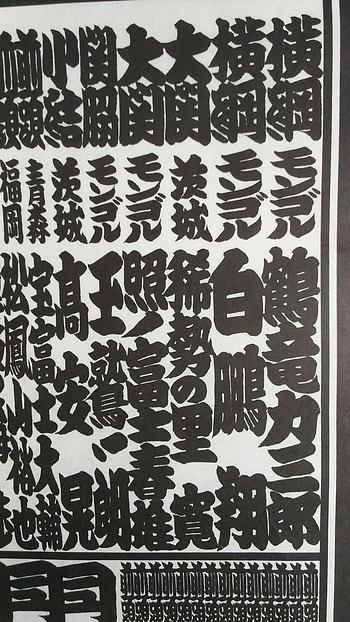 横綱 モンゴル 鶴竜力三郎
横綱 モンゴル 白鵬翔
大関 茨城 稀勢の里寛
大関 モンゴル 照ノ富士春雄
関脇 モンゴル 玉鷲一朗
小結 茨城 高安晃
前頭 青森 宝富士大輔
前頭 福岡 松鳳山裕也